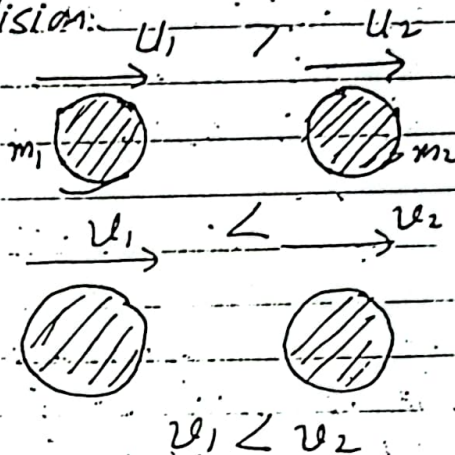 ision:- U₁ > U₂
m₁ m₂
v₁ < v₂
v₁ < v₂